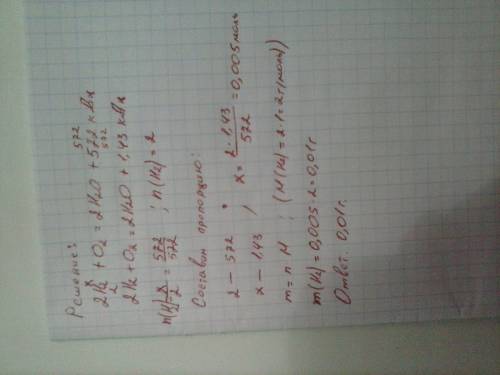 Решение:
2H₂ + O₂ = 2H₂O + 572 кДж
2H₂ + O₂ = 2H₂O + 1,43 кДж
572/572 ; n(H₂) = 2
Составим пропорцию:
2 – 572
x – 1,43 , x = 2·1,43/572 = 0,005 моль
m = n·M ; (M(H₂) = 2·1 = 2 г/моль)
m(H₂) = 0,005·2 = 0,01 г
Ответ: 0,01 г.